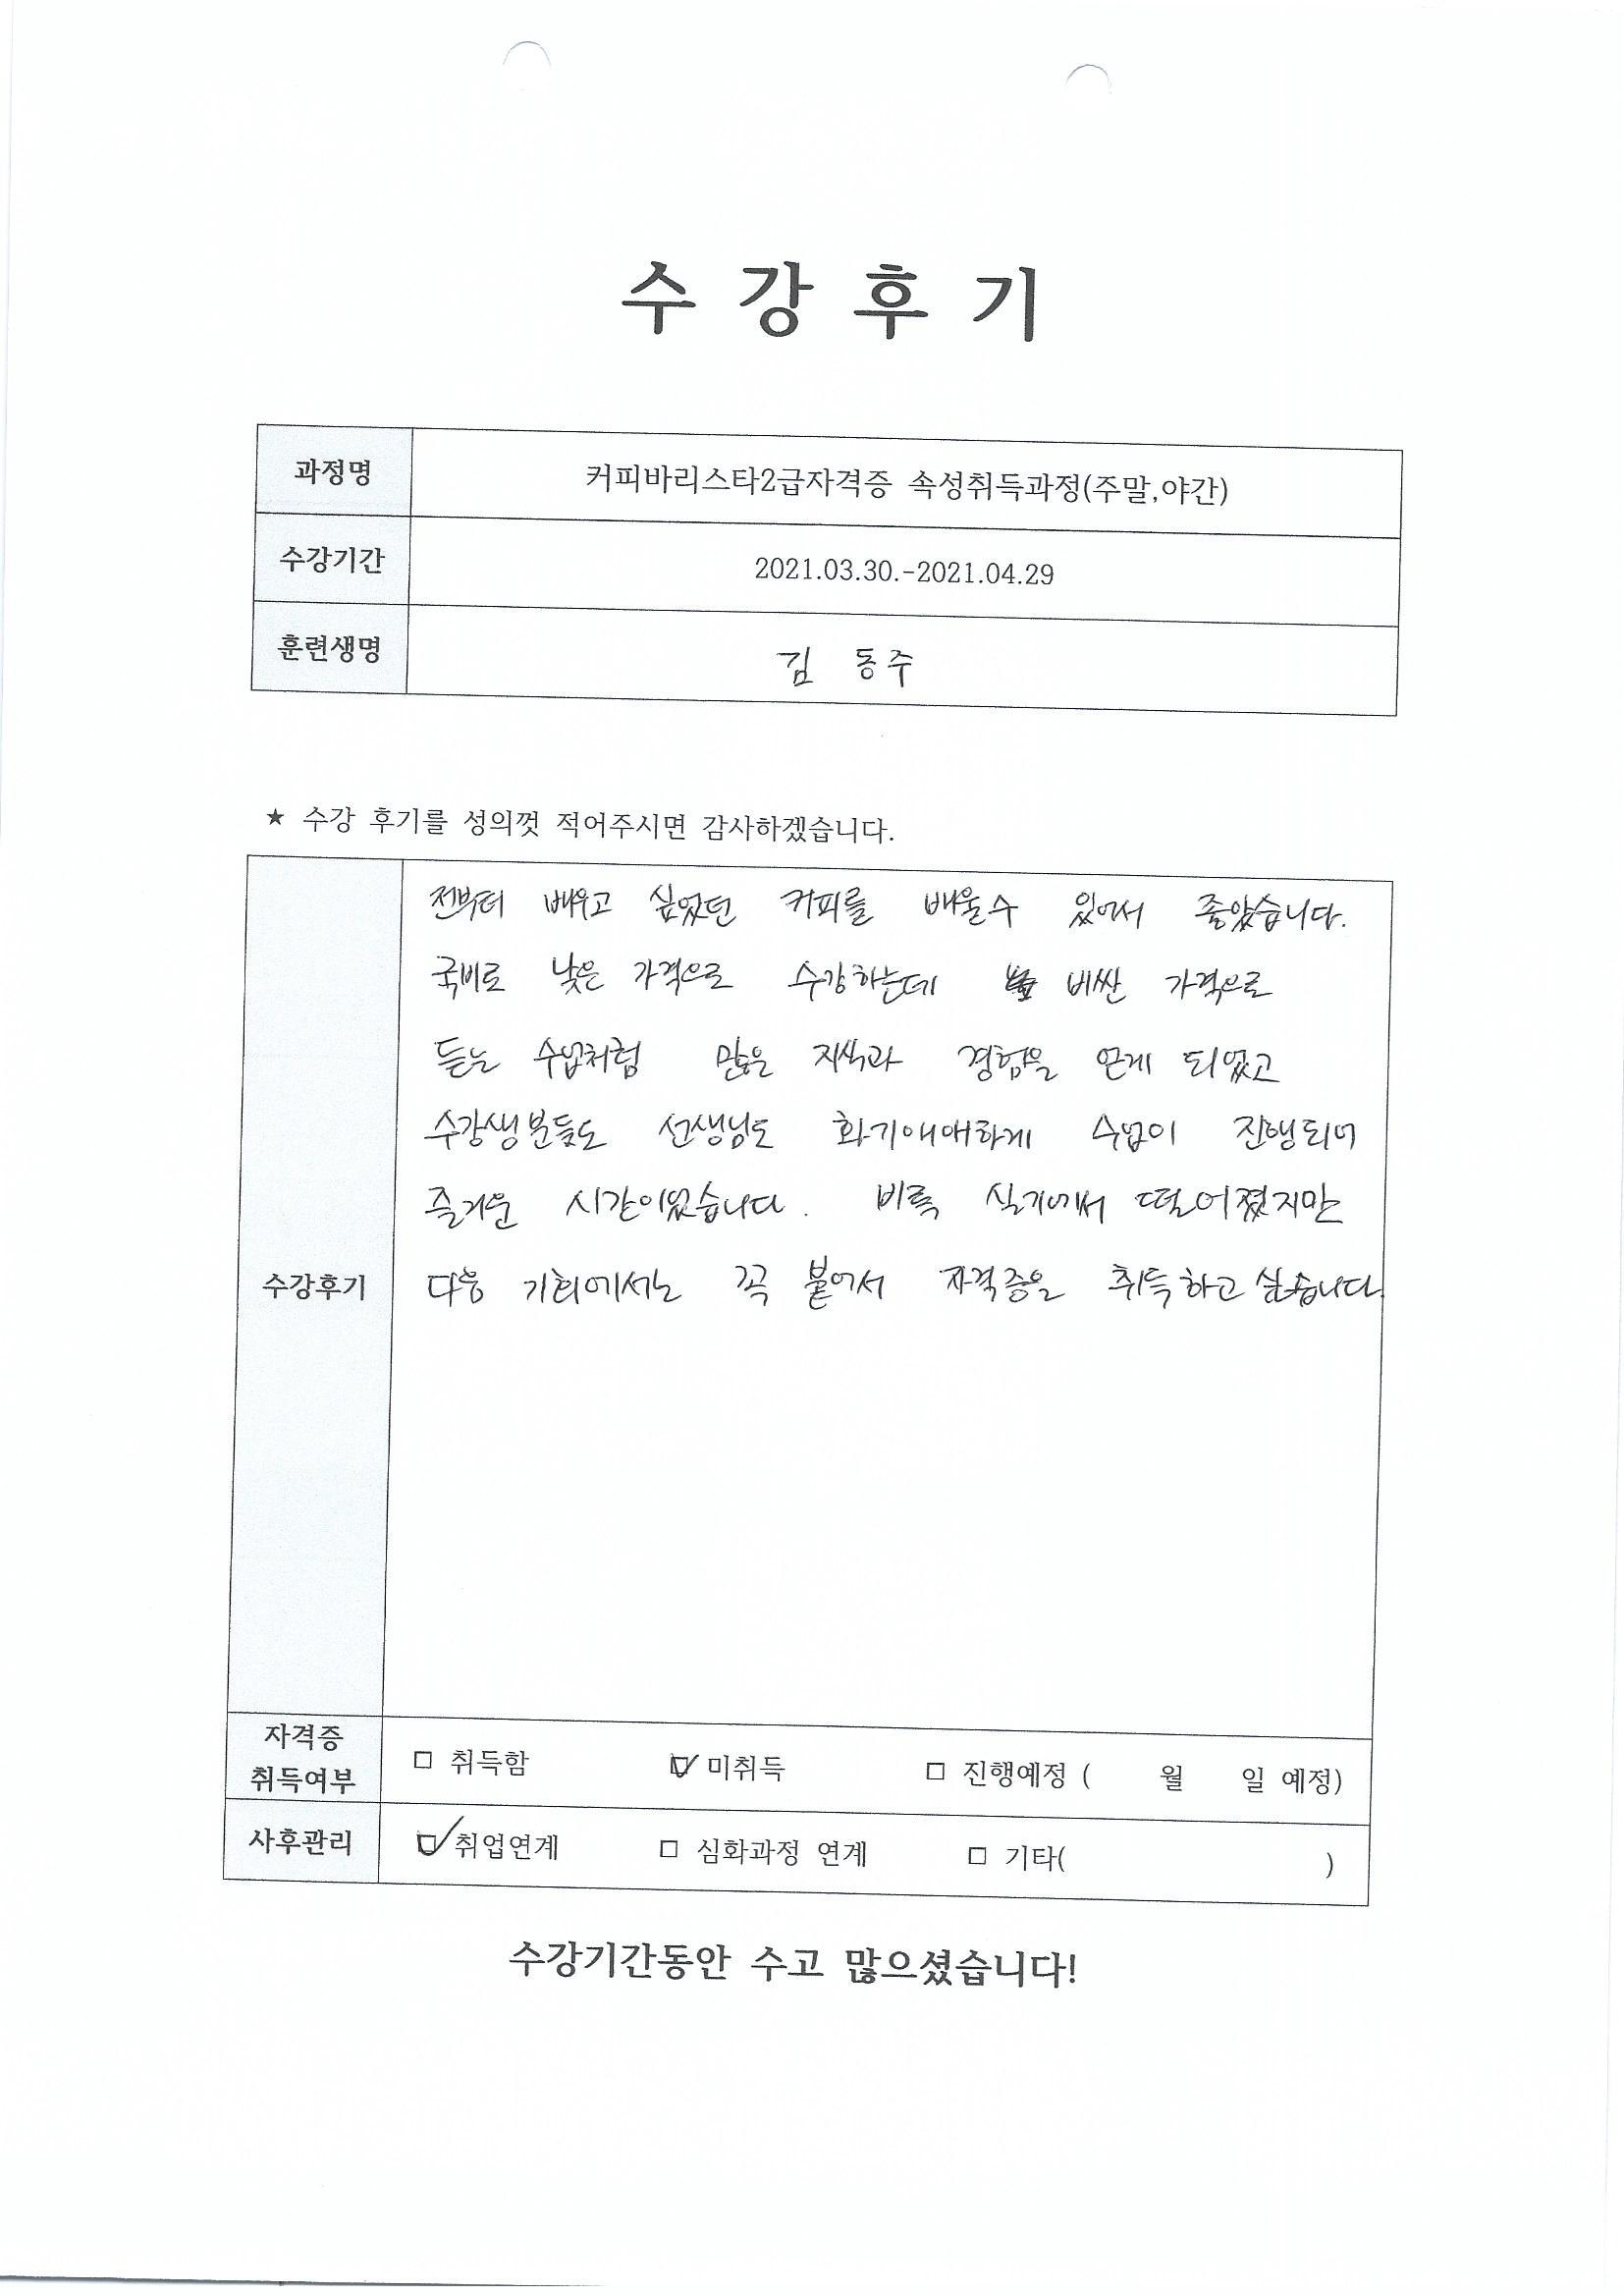 수 강 후 기
과정명 커피바리스타2급자격증 속성취득과정(주말,야간)
수강기간 2021.03.30.-2021.04.29
훈련생명 김 동주
★ 수강 후기를 성의껏 적어주시면 감사하겠습니다.
전부터 배우고 싶었던 커피를 배울수 있어서 좋았습니다.
국비로 낮은 가격으로 수강하는데 비싼 가격으로
듣는 수업처럼 많은 지식과 경험을 얻게 되었고
수강생분들도 선생님도 화기애애하게 수업이 진행되어
즐거운 시간이었습니다. 비록 실기에서 떨어졌지만
수강후기 다음 기회에서는 꼭 붙어서 자격증을 취득하고 싶습니다.
자격증
취득여부 □ 취득함 ☑ 미취득 □ 진행예정 ( 월 일 예정)
사후관리 ☑ 취업연계 □ 심화과정 연계 □ 기타( )
수강기간동안 수고 많으셨습니다!